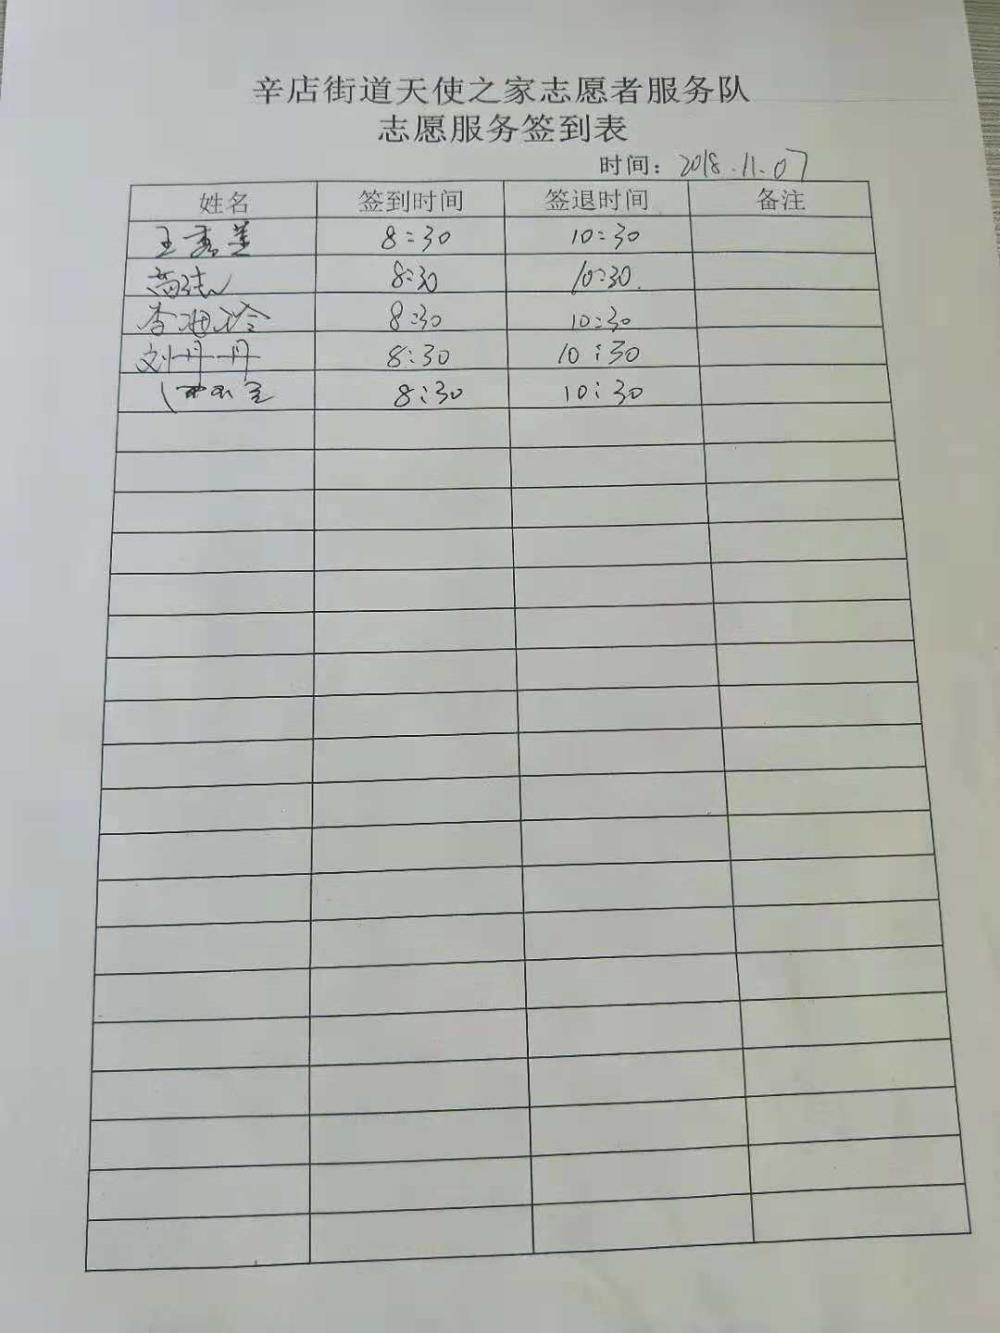 辛店街道天使之家志愿者服务队
志愿服务签到表
时间：2018.11.07
姓名 签到时间 签退时间 备注
王秀兰 8:30 10:30
8:30 10:30.
8:30 10:30
刘丹丹 8:30 10:30
8:30 10:30